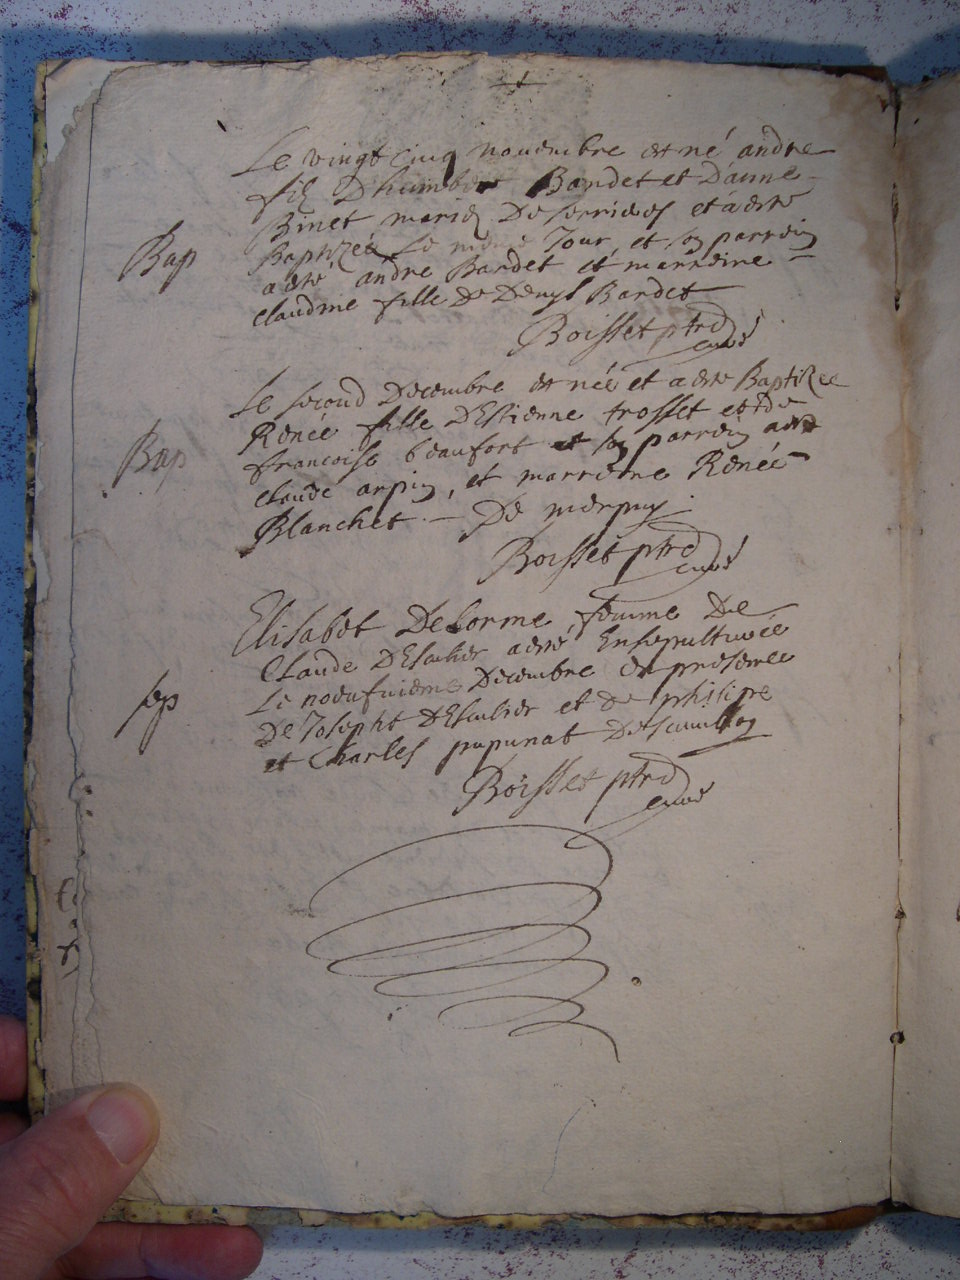 Le vingt cinq novembre est né andre
fils Dhumbert Bandet et Danne
Binet mariés De serrieres et a esté
Bap
Baptizeé Le meme Jour, et son parrein
a esté andre Bandet et marreine
claudine fille De Denys Bandet
Boisset ptre
curé
Le second Decembre est née et a este Baptizee
Renée fille DEstienne trosset et de
Bap
francoise beaufort et son parrein a esté
claude arpin, et marreine Renée
Blanchet De merpuy
Boisset ptre
curé
Elisabet Delorme femme De
Claude DEsculier a esté Ensepulturée
sep
Le noeufuieme Decembre En presence
De Joseph DEsculier et de philipe
et Charles pupunat
Boisset ptre
curé